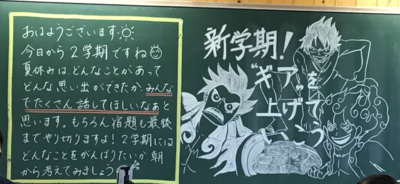 おはようございます。
今日から2学期ですね
夏休みは、どんなことがあって
どんな思い出ができたか、みんな
でたくさん話してほしいなぁと
思います。もちろん宿題も最後
までやり切りますよ!2学期には
どんなことをがんばりたいか朝
から考えてみましょう
新学期!
"ギア"を
上げてこう